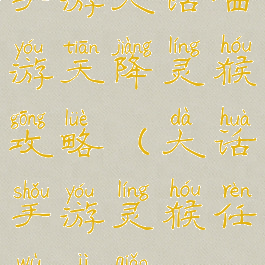 手游大话西
yóu tiān jiàng líng hóu
游天降灵猴
gōng lüè dà huà
攻略（大话
shǒu yóu líng hóu rèn
手游灵猴任
wù jì qiǎo